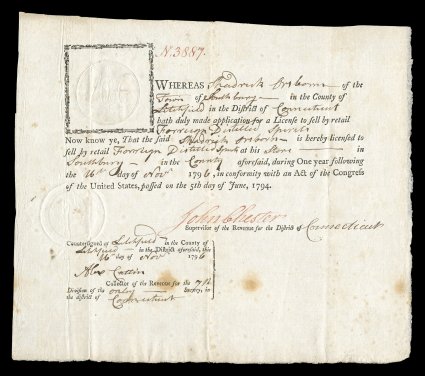 N. 3887.
WHEREAS, Shadrick Osborn of the
Town of Southbury in the County of
Litchfield in the District of Conneticut
hath duly made application for a License to sell by retail
Forreign Distilled Spirits
Now know ye, That the said Shadrick Osborn is hereby licensed to
sell by retail Forreign Distilled Spirits at his Store in
Southbury in the County aforesaid, during One year following
the 16th day of Novr 1796, in conformity with an Act of the Congress
of the United States, passed on the 5th day of June, 1794.
John Chester
Supervisor of the Revenue for the District of Connecticut
Countersigned at Litchfield in the County of
Litchfield in the District aforesaid, this
16th day of Novr 1796
Alex
Collector of the Revenue for the 7th
Division of the only Survey, in
the district of Connecticut